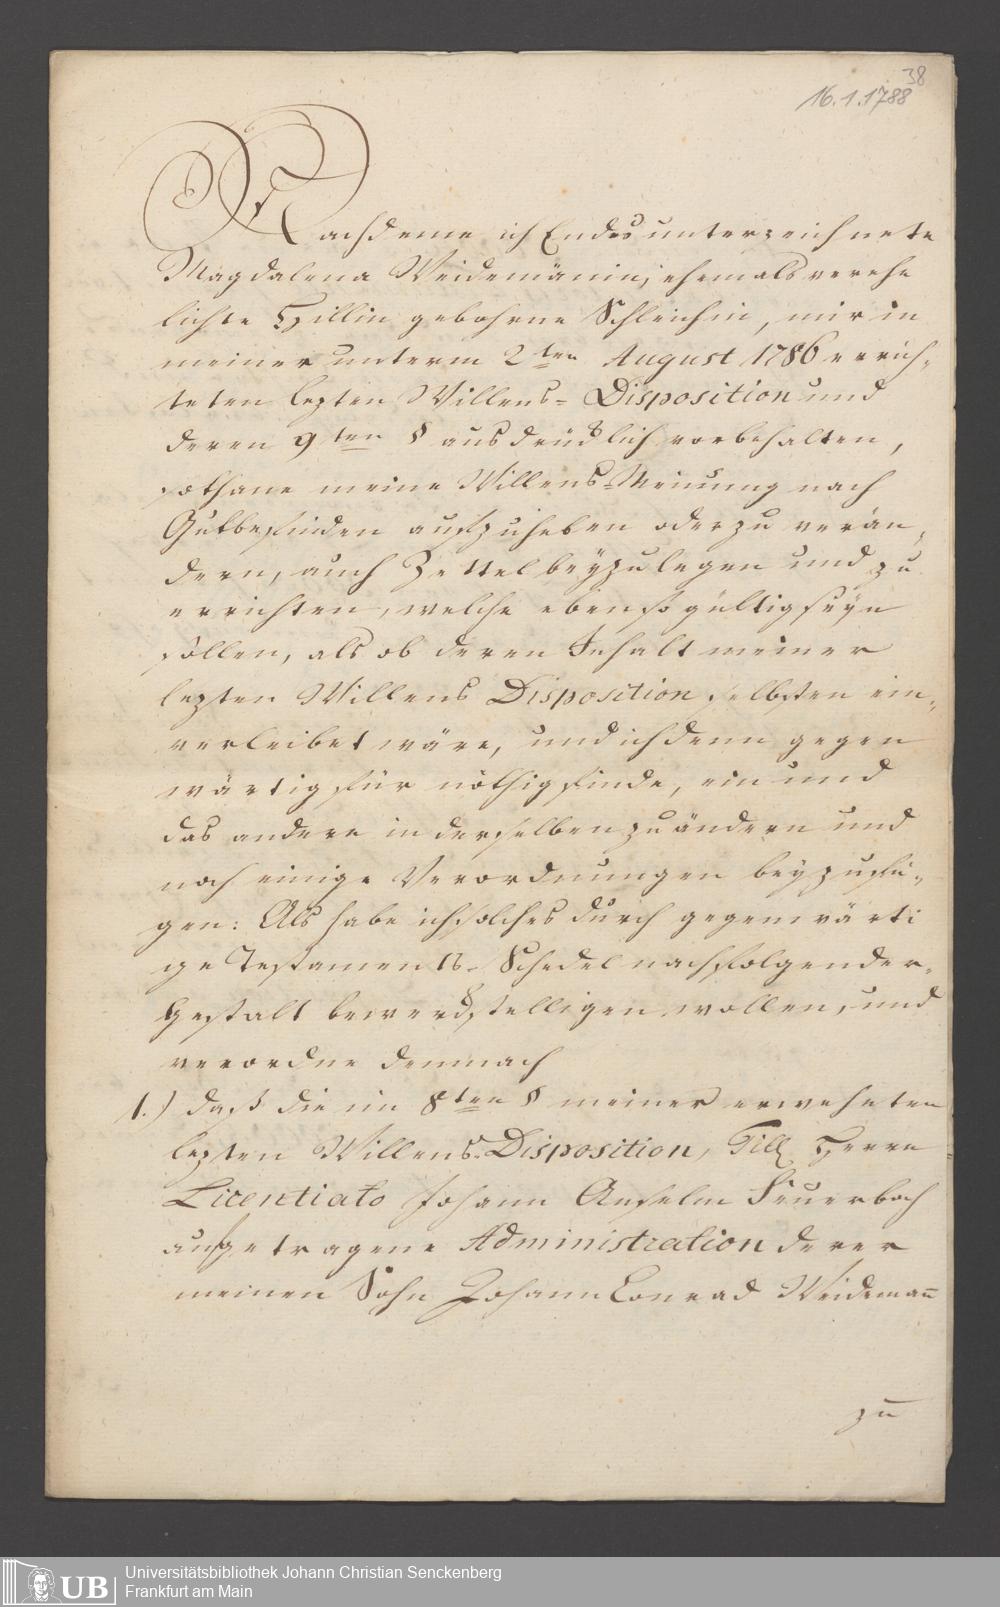 38
16.1.1788
Nachdeme ich Endes unterzeichnete
Magdalena Weidemänin, ehemals verehe
lichte Hillin gebohrne Schleichin, mir in
meiner unterm 2ten August 1786 errich-
teten lezten Willens-Disposition und
deren 9ten § ausdrücklich vorbehalten,
sothane meine Willens-Meinung nach
Gutbefinden aufzuheben oder zu verän-
dern, auch Zettel beyzulegen und zu
errichten, welche ebenso gültig seyn
sollen, als ob deren Inhalt meiner
lezten Willens Disposition selbsten ein-
verleibet wäre, und ich denn gegen
wärtig für nöthig finde, ein und
das andere in derselben zu ändern und
noch einige Verordnungen beyzufü-
gen: Als habe ich solches durch gegenwärti
ge Testaments-Schedel nachfolgender-
gestalt bewerckstelligen wollen, und
verordne demnach
1.) daß die im 8ten § meiner erwehnten
lezten Willens-Disposition, Herrn
Licentiato Johann Anselm Feuerbach
aufgetragene Administration derer
meinen Sohn Johann Conrad Weidemann
zu
UB
Universitätsbibliothek Johann Christian Senckenberg
Frankfurt am Main